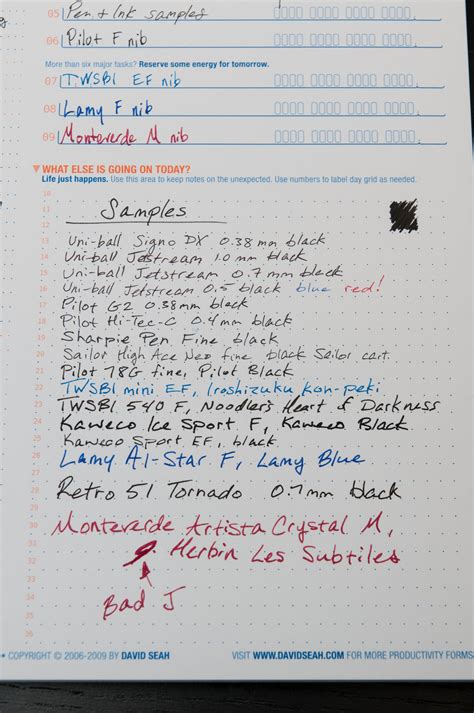 05 Pen + Ink samples
06 Pilot F nib
More than six major tasks? Reserve some energy for tomorrow.
07 TWSBI EF nib
08 Lamy F nib
09 Monteverde M nib
▼ WHAT ELSE IS GOING ON TODAY?
Life just happens. Use this area to keep notes on the unexpected. Use numbers to label day grid as needed.
10
11 Samples
12
13 Uni-ball Signo DX 0.38 mm black
14 Uni-ball Jetstream 1.0 mm black
15 Uni-ball Jetstream 0.7 mm black
16 Uni-ball Jetstream 0.5 black blue red!
17 Pilot G2 0.38mm black
18 Pilot Hi-Tec-C 0.4mm black
19 Sharpie Pen Fine black
20 Sailor High Ace Neo fine black Sailor cart.
21 Pilot 78G fine, Pilot Black
22 TWSBI mini EF, Iroshizuku kon-peki
23 TWSBI 540 F, Noodler's Heart of Darkness
24 Kaweco Ice Sport F, Kaweco Black
25 Kaweco Sport EF, black
26 Lamy Al-Star F, Lamy Blue
27
28 Retro 51 Tornado 0.7mm black
29
30 Monteverde Artista Crystal M,
31
32 J. Herbin Les Subtiles
33
34 Bad J
35
36
• COPYRIGHT © 2006-2009 BY DAVID SEAH VISIT WWW.DAVIDSEAH.COM FOR MORE PRODUCTIVITY FORMS